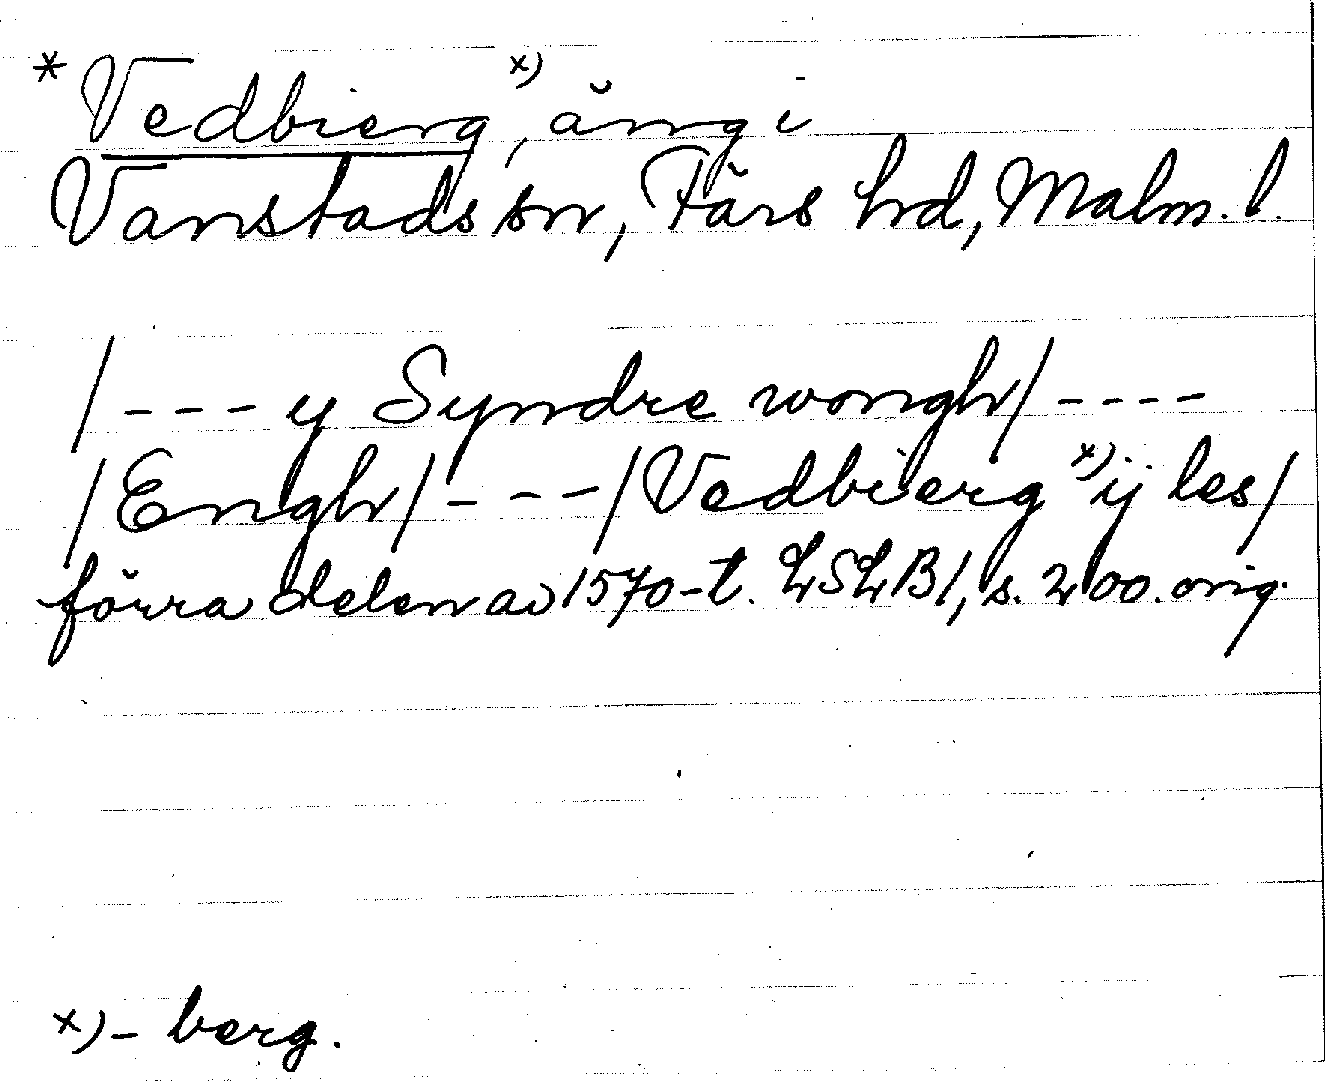 * Vedbierg x), äng i
Vanstads sn, Färs hd, Malm. l.
/---y Syndre wongh/----
/Engh/---/Vedbierg x) ij les/
förra delen av 1570-t. LSLB1, s. 200. orig.
x) - berg.